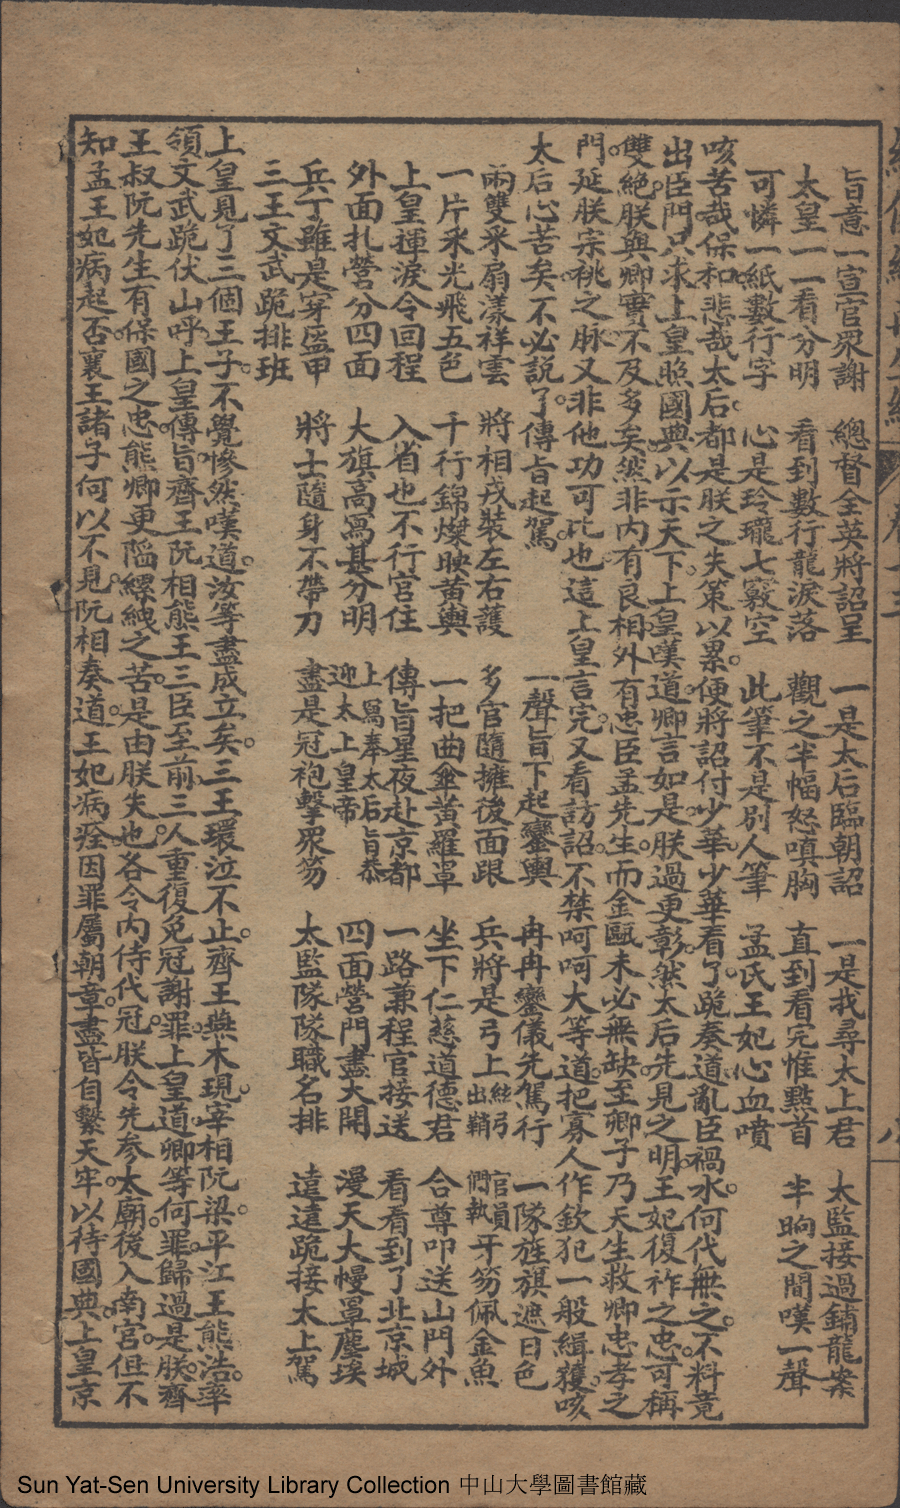 旨意一宣官眾謝　總督全英將詔呈　一是太后臨朝詔　一是找尋太上君　太監接過鋪龍案
太皇一一看分明　看到數行龍淚落　觀之半幅怒嗔胸　直到看完惟點首　半晌之間嘆一聲
可憐一紙數行字　心是玲瓏七竅空　此筆不是別人筆　孟氏王妃心血噴
咳苦哉保和悲哉太后都是朕之失策以累便將詔付少華少華看了跪奏道亂臣禍水何代無之不料竟
出臣門只求上皇照國典以示天下上皇嘆道卿言如是朕過更彰然太后先見之明王妃復祚之忠可稱
雙絕朕與卿實不及多矣然非內有良相外有忠臣孟先生而金甌未必無缺至卿子乃天生救卿忠孝之
門延朕宗祧之脉又非他功可比也這上皇言完又看訪詔不禁呵呵大等道把寡人作欽犯一般緝獲咳
太后心苦矣不必說了傳旨起駕　一聲旨下起鑾輿　冉冉鑾儀先駕行　一隊旌旗遮日色
兩雙采扇漾祥雲　將相戎裝左右護　多官隨擁後面跟　兵將是弓上絃弓出鞘　官員們執牙笏佩金魚
一片釆光飛五色　千行錦燦映黃輿　一把曲傘黃羅罩　坐下仁慈道德君　合尊叩送山門外
上皇揮淚令回程　入省也不行官住　傳旨星夜赴京都　一路兼程官接送　看看到了北京城
外面扎營分四面　大旗高寫甚分明　上寫奉太后旨恭迎太上皇帝　四面營門盡大開　漫天大幔罩塵埃
兵丁雖是穿盔甲　將士隨身不帶刀　盡是冠袍擊眾笏　太監隊隊職名排　遠遠跪接太上駕
三王文武跪排班
上皇見了三個王子不覺慘然嘆道汝等盡成立矣三王環泣不止齊王無木現宰相阮梁平江王熊浩率
領文武跪伏山呼上皇傳旨齊王阮相熊王三臣至前三人重復免冠謝罪上皇道卿等何罪歸過是朕齊
王叔阮先生有保國之忠熊卿更陷縲絏之苦是由朕失也各令內侍代冠朕令先參太廟後入南宮但不
知孟王妃病起否襄王諸子何以不見阮相奏道王妃病痊因罪屬朝章盡皆自繫天牢以待國典上皇京
Sun Yat-Sen University Library Collection 中山大學圖書館藏